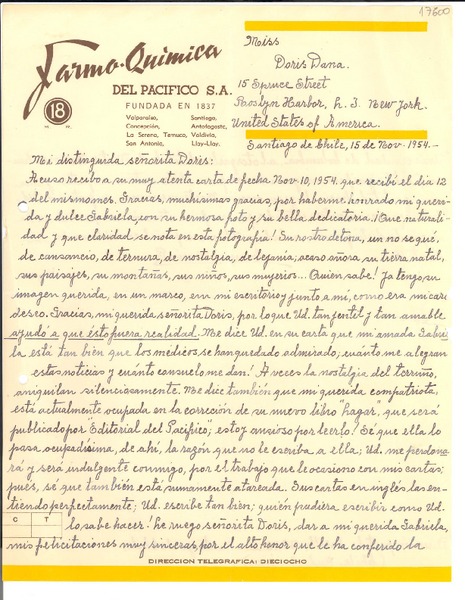 17600
Farmo-Química
DEL PACIFICO S.A.
FUNDADA EN 1837
18
M. R.
M. R.
Valparaíso, Santiago,
Concepción, Antofagasta,
La Serena, Temuco, Valdivia,
San Antonio, Llay-Llay.
Miss
Doris Dana.
15 Spruce Street
Roslyn Harbor, L. I. New York.
United States of America.
Santiago de Chile, 15 de Nov. 1954.-
Mi distinguida señorita Doris:
Acuso recibo a su muy atenta carta de fecha Nov. 10, 1954. que recibí el día 12
del mismo mes. Gracias, muchísimas gracias, por haberme honrado mi queri-
da y dulce Gabriela, con su hermosa foto y su bella dedicatoria. ¡Que naturali-
dad y que claridad se nota en esta fotografía! Su rostro denota, un no se que,
de cansancio, de ternura, de nostalgia, de lejanía; acaso añora su tierra natal,
sus paisajes, su montañas, sus niños, sus mujeres... Quien sabe! Ya tengo su
imagen querida, en un marco, en mi escritorio y junto a mí, como era mi caro
deseo. Gracias, mi querida señorita Doris, por lo que Ud. tan gentil y tan amable
ayudó a que esto fuera realidad. Me dice Ud. en su carta que mi amada Gabrie
la está tan bien que los médicos se han quedado admirado, cuánto me alegran
estas noticias y cuánto consuelo me dan! A veces la nostalgia del terruño,
aniquilan silenciosamente. Me dice también que mi querida compatriota,
está actualmente ocupada en la corrección de su nuevo libro "Lagar", que será
publicado por "Editorial del Pacífico"; estoy ansioso por leerlo! Sé que ella lo
pasa ocupadísima, de ahí, la razón que no le escriba a ella; Ud. me perdona-
rá y será indulgente conmigo, por el trabajo que le ocasiono con mis cartas;
pués, sé que también está sumamente atareada. Sus cartas en inglés las en-
tiendo perfectamente; Ud. escribe tan bien; quién pudiera escribir como Ud.
lo sabe hacer! Le ruego señorita Doris, dar a mi querida Gabriela,
mis felicitaciones muy sinceras, por el alto honor que le ha conferido la
C T
DIRECCION TELEGRAFICA: DIECIOCHO